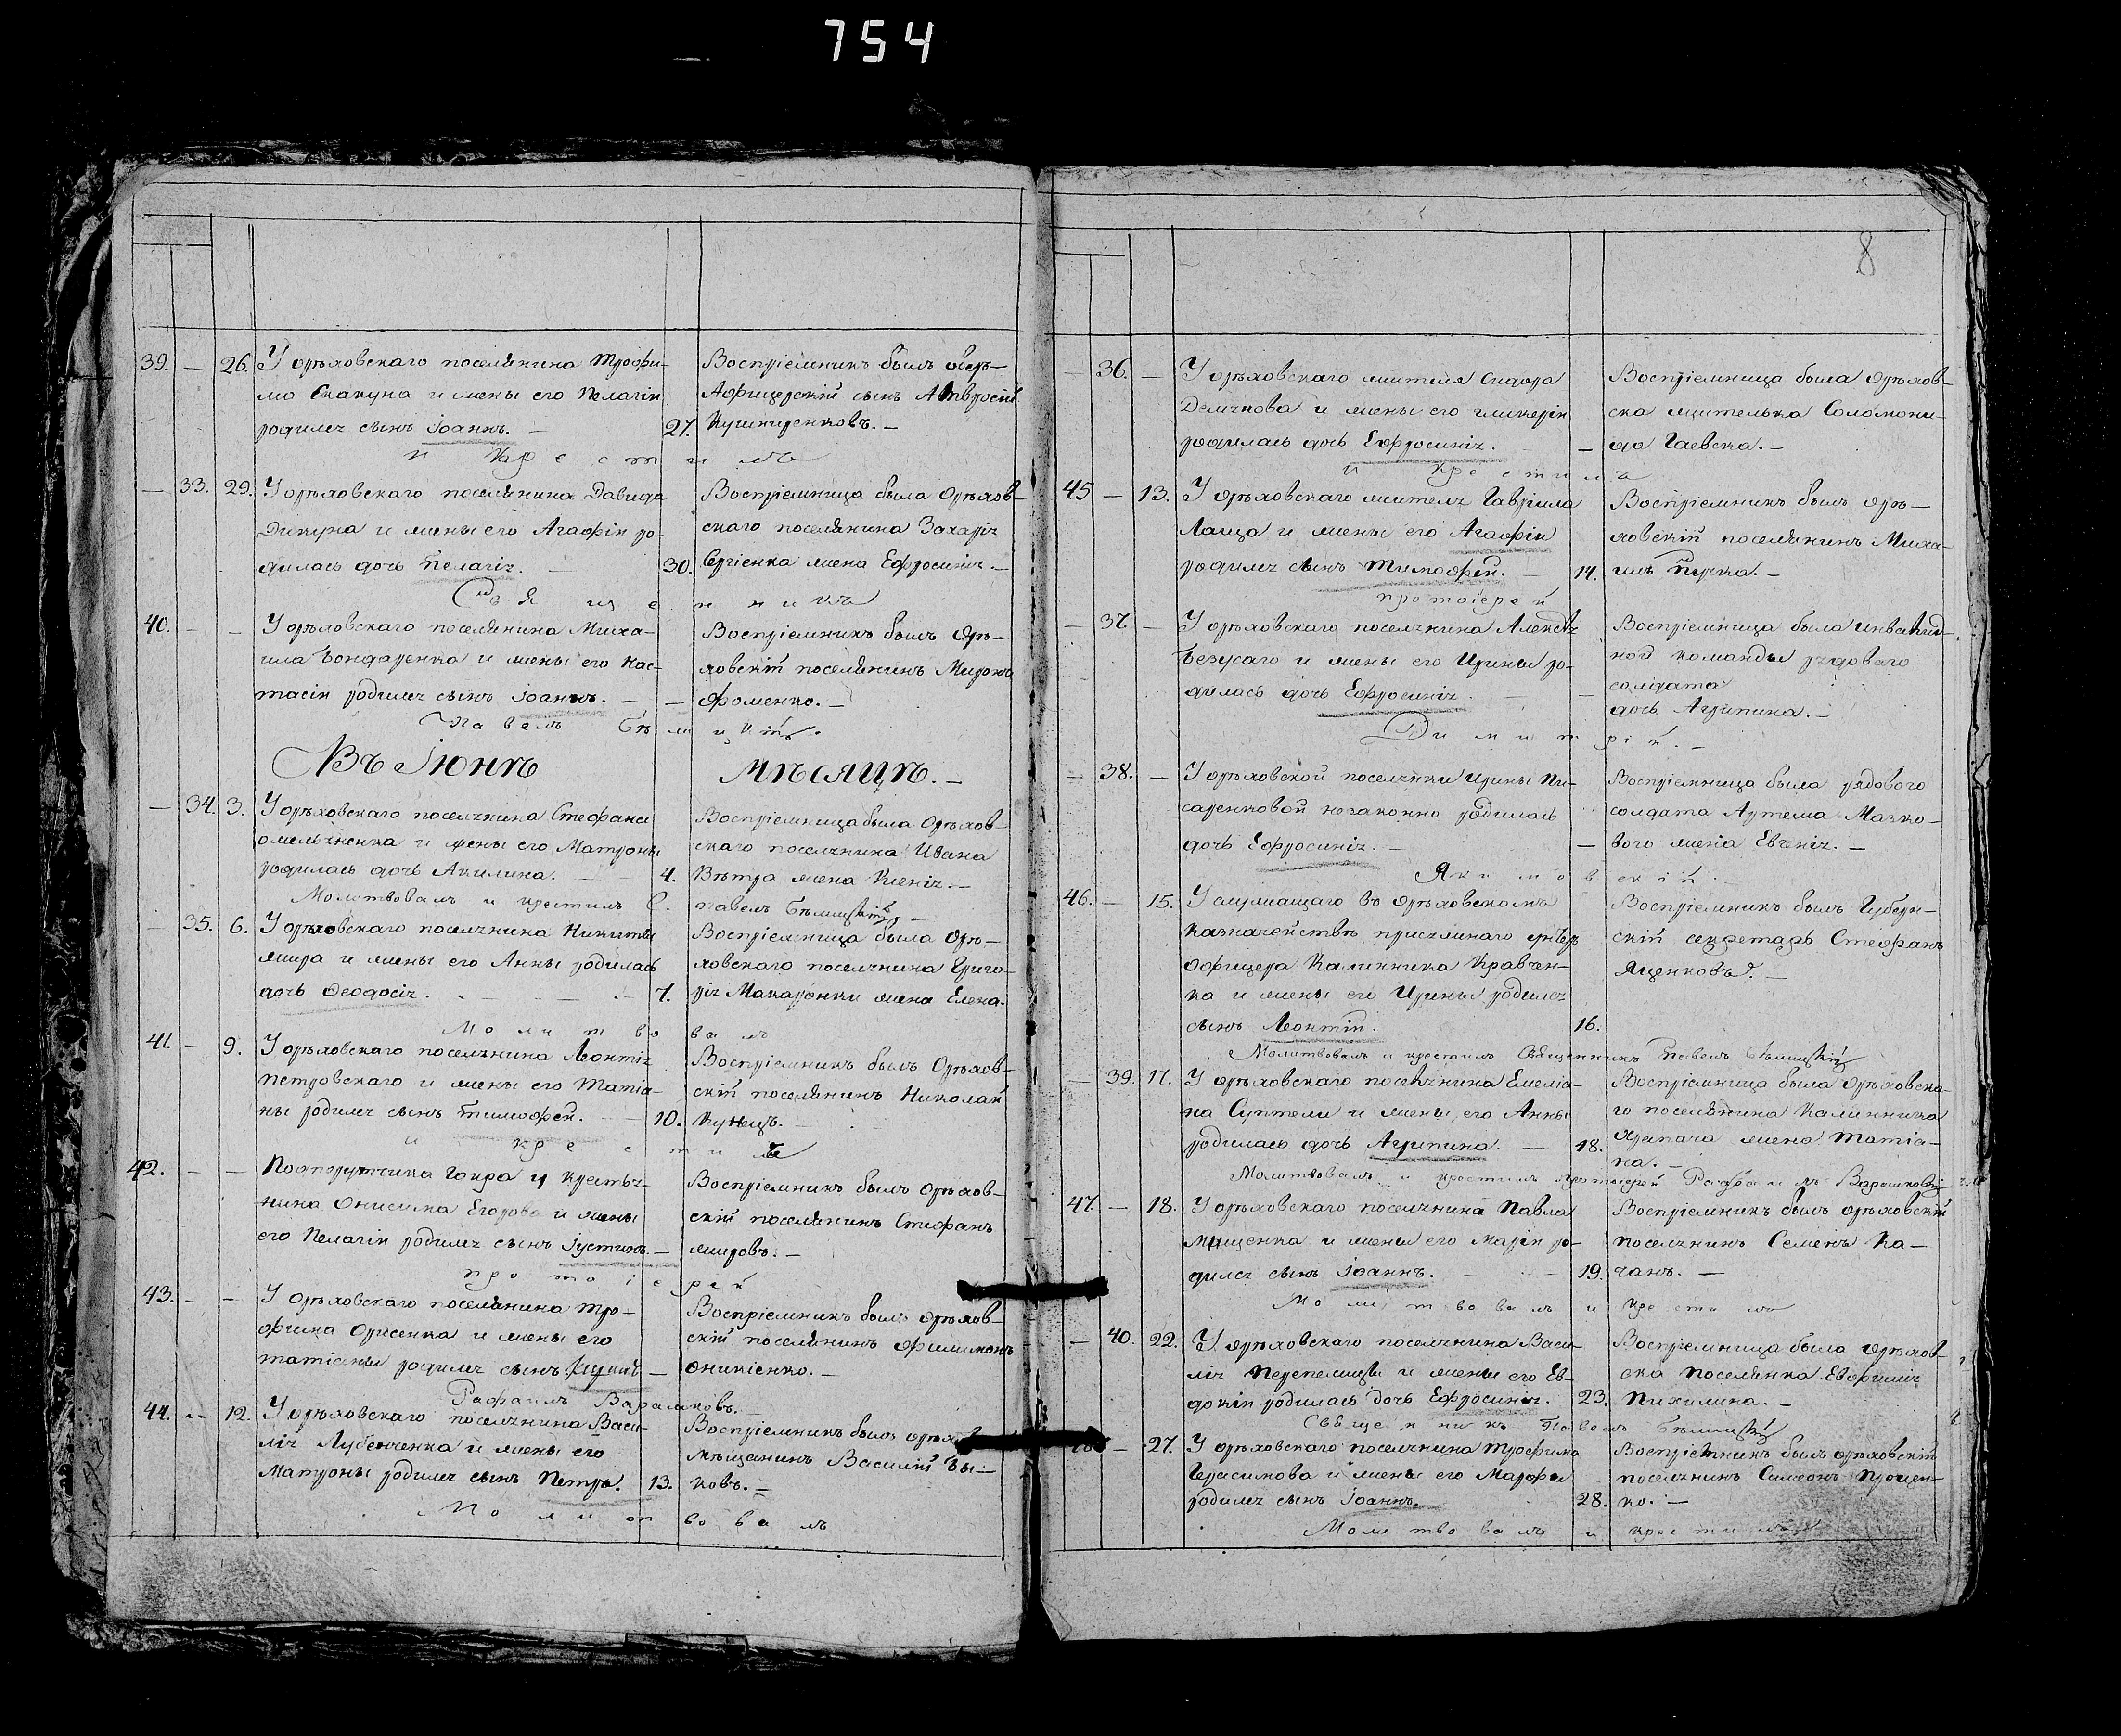 754
39. — 26. У орѣховскаго поселянина Трофи-
ма Скакуна и жены его Пелагіи
родился сынъ Іоаннъ. — 27.
Воспріемникъ былъ оберъ-
Афицерскій сынъ Амвросій
Кушниренковъ. —
и крестилъ
— 33. 29. У орѣховскаго поселянина Давида
Дикуна и жены его Агафіи ро-
дилась дочь Пелагія. — 30.
Воспріемница была Орѣхов-
скаго поселянина Захарія
Сергіенка жена Ефросинія. —
Священникъ
40. — — У орѣховскаго поселянина Миха-
ила Бондаренка и жены его Нас-
тасіи родился сынъ Іоаннъ. — —
Воспріемникъ былъ Орѣ-
ховскій поселянинъ Миронъ
Фоменко. —
Павелъ
Въ Іюнѣ мѣсяцѣ. —
— 34. 3. У орѣховскаго поселянина Стефана
Омельяненка и жены его Матроны
родилась дочь Акилина. — 4.
Воспріемница была Орѣхов-
скаго поселянина Ивана
Вѣтра жена Ксенія. —
Молитвовалъ и крестилъ С. Павелъ
— 35. 6. У орѣховскаго поселянина Никиты
и жены его Анны родилась
дочь Феодосія. — 7.
Воспріемница была Орѣ-
ховскаго поселянина Григо-
рія Макаронки жена Елена.
Молитвовалъ
41. — 9. У орѣховскаго поселянина Леонтія
Петровскаго и жены его Татіа-
ны родился сынъ Тимофей. — 10.
Воспріемникъ былъ Орѣхов-
скій поселянинъ Николай
Кунецъ. —
и крестилъ
42. — — Поапорутчика у крестья-
нина Онисима Егорова и жены
его Пелагіи родился сынъ Іустинъ. —
Воспріемникъ былъ Орѣхов-
скій поселянинъ Стефанъ
—
протоіерей
43. — — У Орѣховскаго поселянина Тро-
фима и жены его
Татіаны родился сынъ —
Воспріемникъ былъ орѣхов-
скій поселянинъ Филимонъ
Оникіенко. —
Рафаилъ
44. — 12. У орѣховскаго поселянина Васи-
лія Лубенченка и жены его
Матроны родился сынъ Петръ. 13.
Воспріемникъ былъ
мѣщанинъ Василій Бы-
ковъ. —
Молитвовалъ
8
— 36. — У орѣховскаго жителя Сидора
Демчкова и жены его Гликеріи
родилась дочь Ефросинія. —
Воспріемница была орѣхов-
ска жителька Соломони-
да Гаевска. —
и крестилъ
45 — 13. У орѣховскаго жителя Гавріила
Лаща и жены его Агафіи
родился сынъ Тимофей. — 14.
Воспріемникъ былъ орѣ-
ховскій поселянинъ Миха-
илъ Пурка. —
протоіерей
— 37. — У орѣховскаго поселянина Алексѣя
Безусаго и жены его Ирины ро-
дилась дочь Ефросинія. —
Воспріемница была инвалид-
ной команды рядоваго
солдата
дочь Агрипина. —
Димитрій. —
— 38. — У орѣховской поселянки Ирины Пи-
саренковой незаконно родилась
дочь Ефросинія. — —
Воспріемница была рядового
солдата Артема Мазко-
вого жена Евгенія. —
Якимовскій. —
46. — 15. У служащаго въ Орѣховскомъ
Казначействѣ присяжнаго унтеръ
Офицера Калинника Кравчен-
ка и жены его Ирины родился
сынъ Леонтій. 16.
Воспріемникъ былъ Губерн-
скій секретарь Стефанъ
Яценковъ. —
Молитвовалъ и крестилъ Священникъ Павелъ
— 39. 17. У орѣховскаго поселянина Емеліа-
на Суптели и жены его Анны
родилась дочь Агрипина. — 18.
Воспріемница была Орѣховска-
го поселянина Калинника
жена Татіа-
на. —
Молитвовалъ и крестилъ протоіерей Рафаилъ
47. — 18. У орѣховскаго поселянина Павла
Мищенка и жены его Маріи ро-
дился сынъ Іоаннъ. — 19.
Воспріемникъ былъ орѣховскій
поселянинъ Семенъ Ка-
чанъ. —
Молитвовалъ и крестилъ
— 40. 22. У орѣховскаго поселянина Васи-
лія Перепелицы и жены его Ев-
докіи родилась дочь Ефросинія. 23.
Воспріемница была орѣхов-
ска поселянка Евфимія
Пихилина. —
Священникъ Павелъ
— 27. У орѣховскаго поселянина Трофима
Герасимова и жены его Марфы
родился сынъ Іоаннъ. 28.
Воспріемникъ былъ орѣховскій
поселянинъ Симеонъ Процен-
ко. —
Молитвовалъ и крестилъ